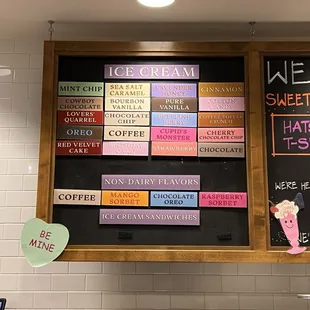 ICE CREAM
MINT CHIP
SEA SALT CARAMEL
LAVENDER HONEY
CINNAMON
COWBOY CHOCOLATE
BOURBON VANILLA
PURE VANILLA
LOVERS' QUARREL
CHOCOLATE CHIP
CHERRY CHOCOLATE
OREO
COFFEE
CUPID'S MONSTER
RED VELVET CAKE
CHOCOLATE
NON-DAIRY FLAVORS
COFFEE
MANGO SORBET
CHOCOLATE OREO
RASPBERRY SORBET
ICE CREAM SANDWICHES
BE MINE
WE
SWEET
HATS
T-S
WE'RE H